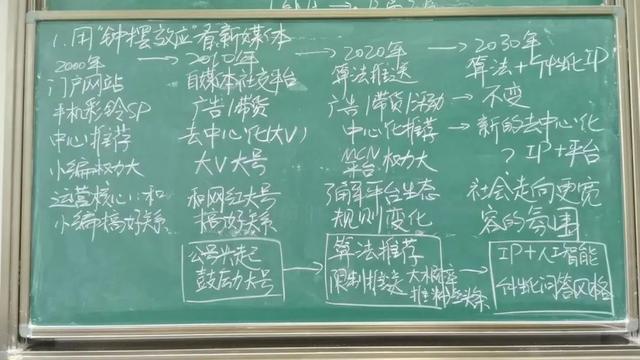 1.用"钟摆效应"看新媒体
2000年 → 2010年 → 2020年 → 2030年
门户网站 自媒体社交平台 算法推送 算法+个性化IP
手机彩铃SP 广告/带货 广告/带货/活动 → 不变
中心推荐 去中心化(大V) 中心化推荐 → 新的去中心化
小编权力大 大V大号 MCN平台权力大 ? IP+平台
运营核心:和 和网红大号 了解平台生态 社会走向更宽
小编搞好关系 搞好关系 规则变化 容的氛围
公号兴起 算法推荐 IP+人工智能
鼓励大号 → 限制推送 大概率 → 个性化问答风格
推头条